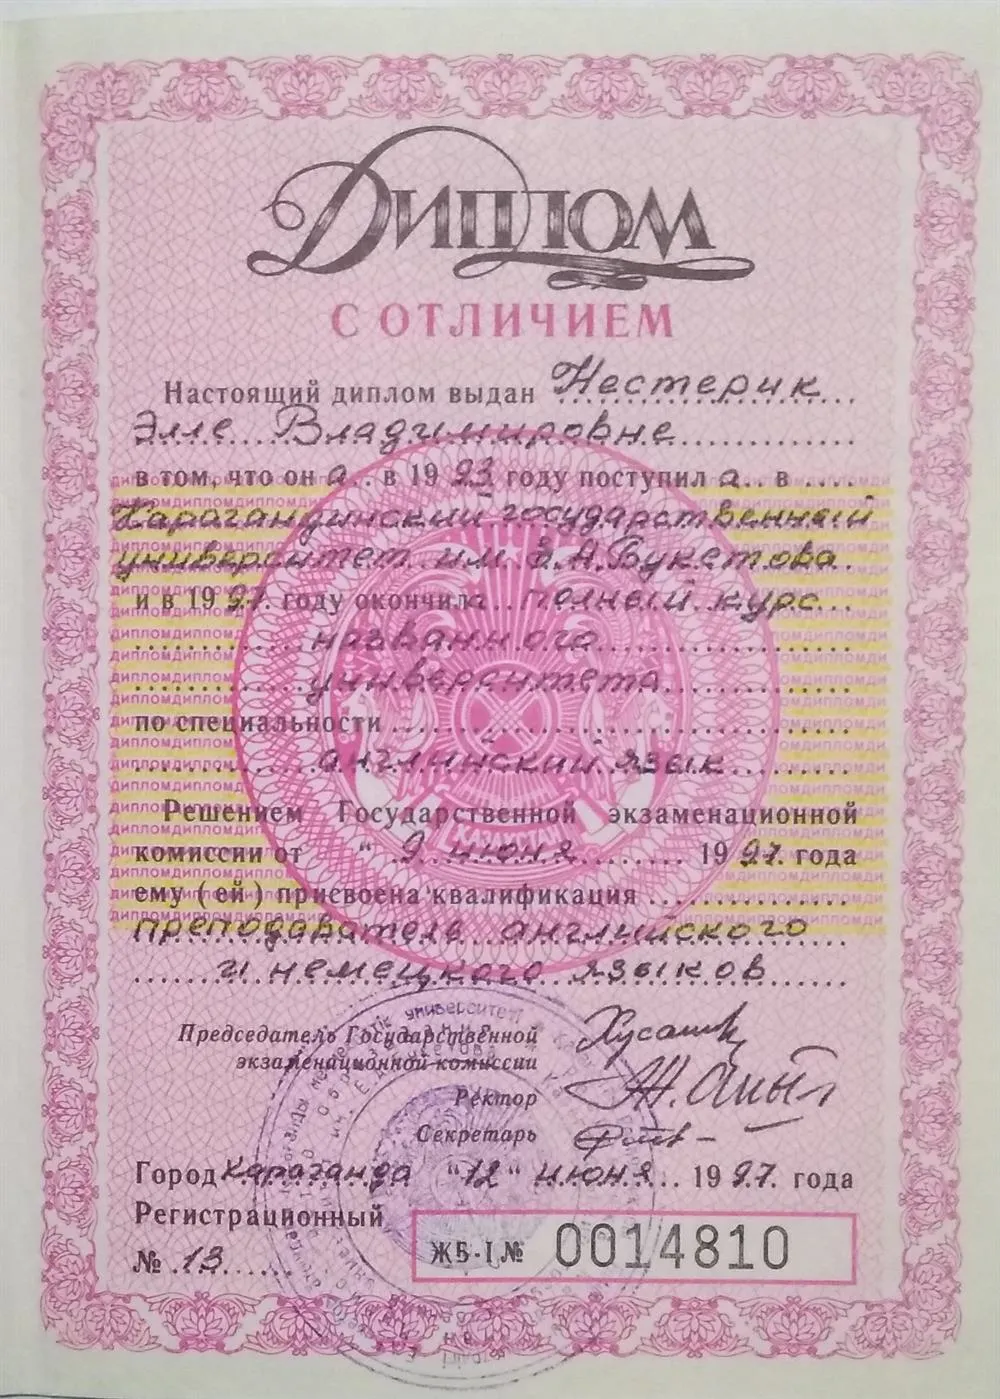 Диплом
С ОТЛИЧИЕМ
Настоящий диплом выдан Нестерик
Элле Владимировне
в том, что он а в 1993 году поступил а в
Карагандинский государственный
университет им. Е.А.Букетова
и в 1997 году окончила полный курс
названного
университета
по специальности
английский язык
Решением Государственной экзаменационной
комиссии от " 9 июня 1997 года
ему ( ей ) присвоена квалификация
преподаватель английского
и немецкого языков
Председатель Государственной
экзаменационной комиссии
Ректор
Секретарь
Город Караганда "12" июня 1997 года
Регистрационный
№ 13
ЖБ-I № 0014810
КАЗАКСТАН